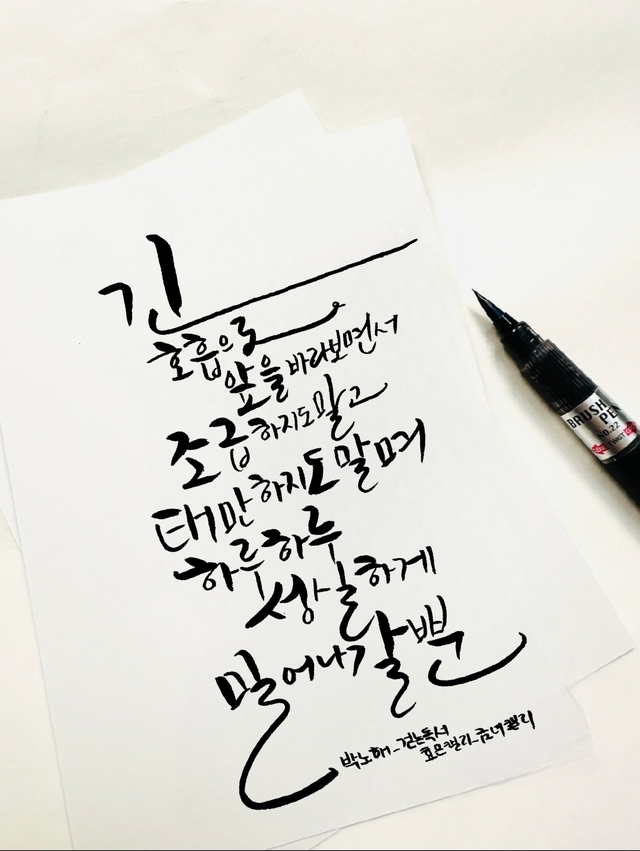 긴
호흡으로
앞을 바라보면서
조급하지도 말고
태만하지도 말며
하루하루
성실하게
밀어나갈 뿐
박노해_걷는독서
효은캘리_금녀캘리
BRUSH
PEN
NO.22